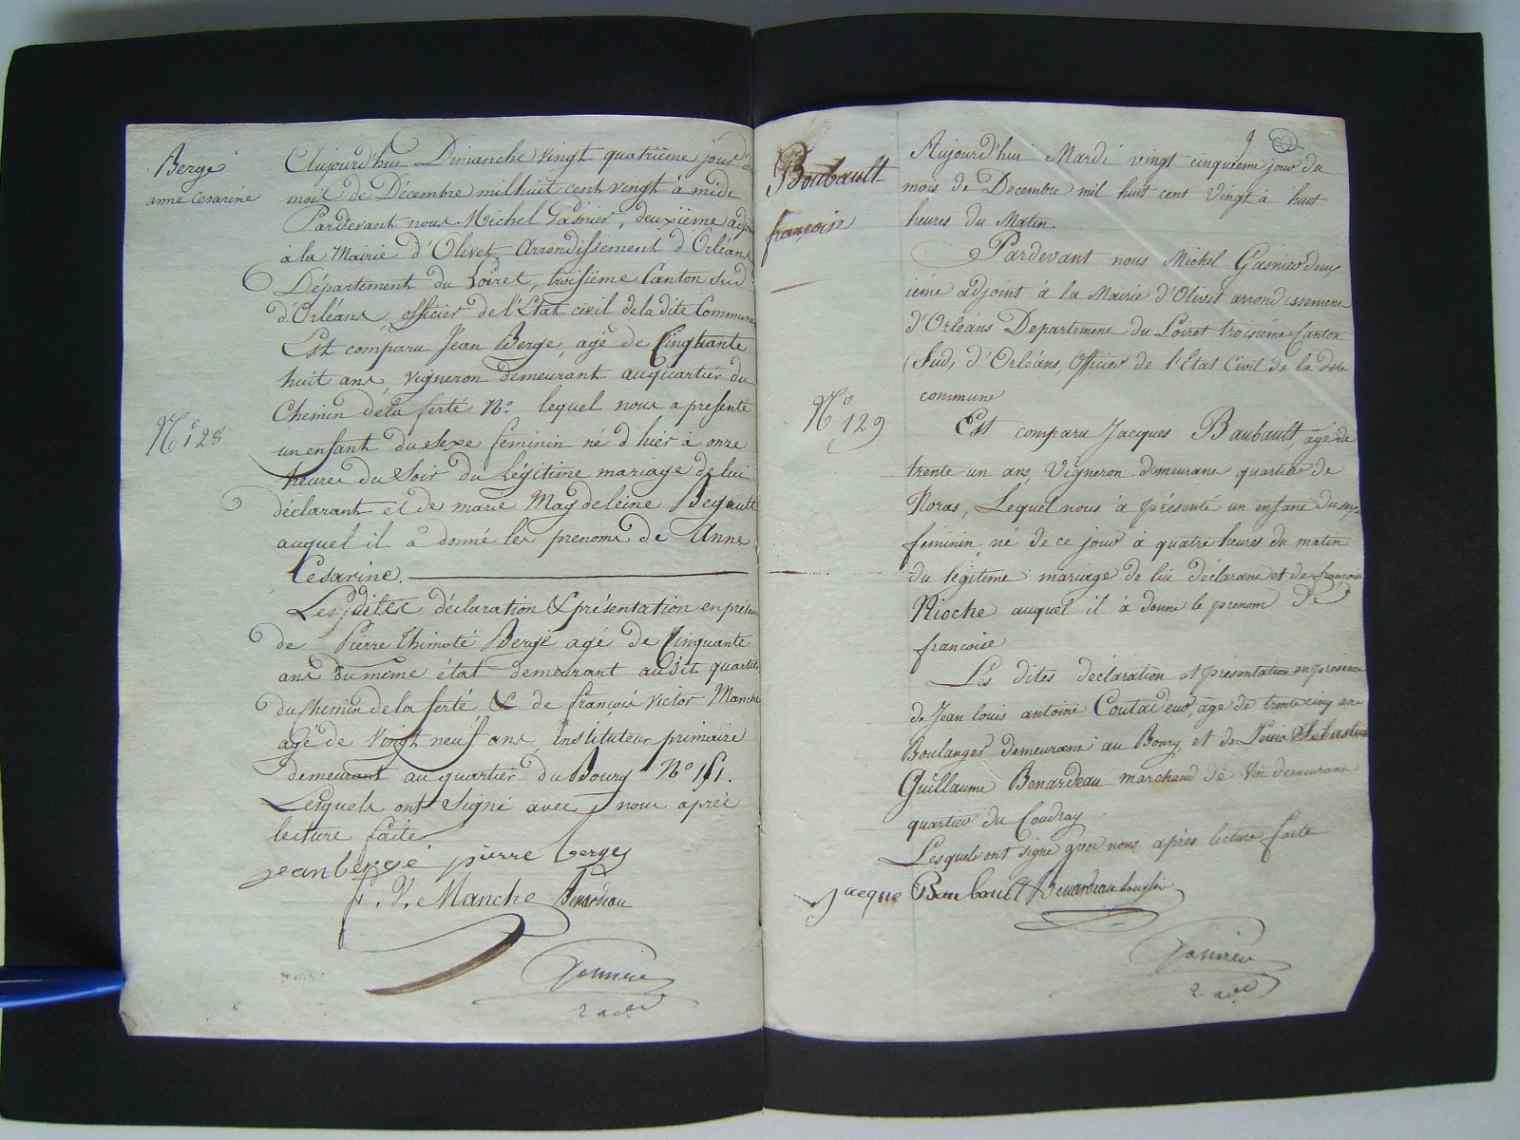 Bergé
anne Cesarine
Aujourd'hui Dimanche vingt quatrième jour du
mois de Décembre mil huit cent vingt à midi
Pardevant nous Michel Gasnier, deuxième adj
à la Mairie d'Olivet Arrondissement d'Orléans
Département du Loiret, troisième Canton Sud
d'Orléans, officier de l'Etat civil de la dite Commune
Est comparu Jean Bergé, agé de Cinquante
huit ans, vigneron demeurant au quartier du
Chemin de la ferté N.º lequel nous a presenté
N.º 128
un enfant du sexe feminin né d'hier à onze
heures du Soir du Légitime mariage de lui
déclarant et de marie Magdeleine Begault
auquel il a donné les prenoms de Anne
Cesarine.
Les dites déclaration & présentation en présen
de Pierre Thimoté Bergé agé de Cinquante
ans du même état demeurant audit quartier
du Chemin de la ferté & de françois victor Manche
agé de vingt neuf ans, instituteur primaire
demeurant au quartier du Bourg N.º 151.
Lesquels ont signé avec nous après
lecture faite
jean bergé pierre berge
f. V. Manche Benardeau
Gasnier
2 adj
Boubault
françoise
Aujourd'hui Mardi vingt cinquième jour du
mois de Decembre mil huit cent vingt à huit
heures du Matin.
Pardevant nous Michel Gasnier deux
ième adjoint à la Mairie d'Olivet arrondissement
d'Orléans Departement du Loiret troisième Canton
(Sud) d'Orléans, Officier de l'Etat Civil de la dite
commune
N.º 129
Est comparu Jacques Baubault âgé de
trente un ans, Vigneron demeurant quartier de
Noras, Lequel nous à présenté un enfant du sexe
feminin, né de ce jour a quatre heures du matin
du legitime mariage de lui déclarant et de françoise
Rioche auquel il à donné le prenom de
francoise
Les dites déclaration et présentation en présence
de Jean louis antoine Coutadeur, âgé de trente cinq ans
Boulanger demeurant au Bourg et de Louis Sebastien
Guillaume Benardeau marchand de Vin demeurant
quartier du Coudray
Lesquels ont signé avec nous après lecture faite
Jacque Boubault Benardeau
Gasnier
2 adj